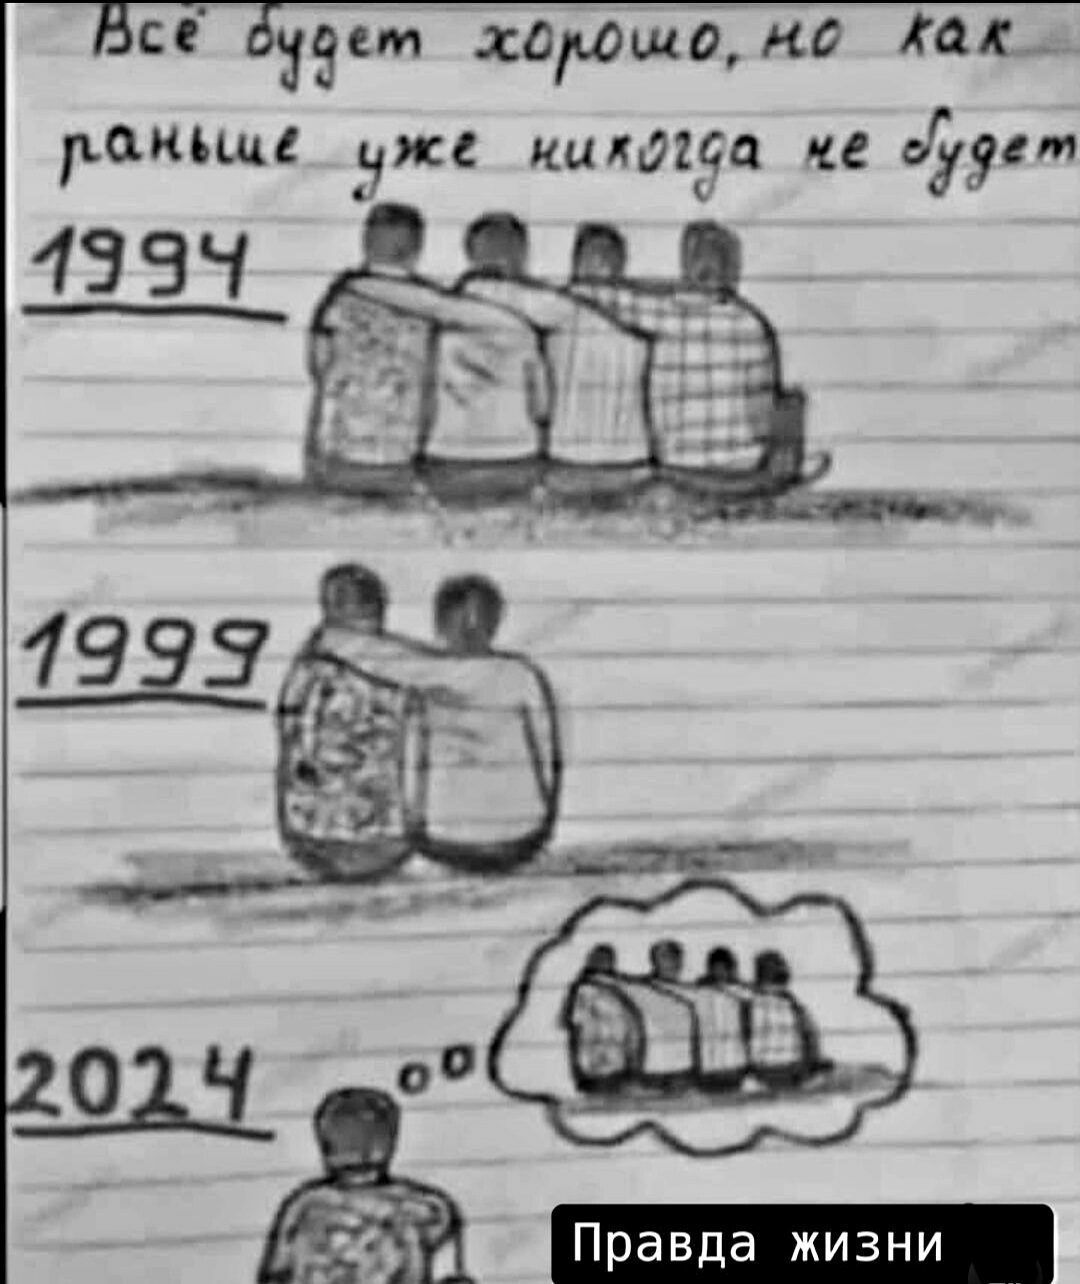 Всё будет хорошо, но как
раньше уже никогда не будет
1994
1999
2024
Правда жизни